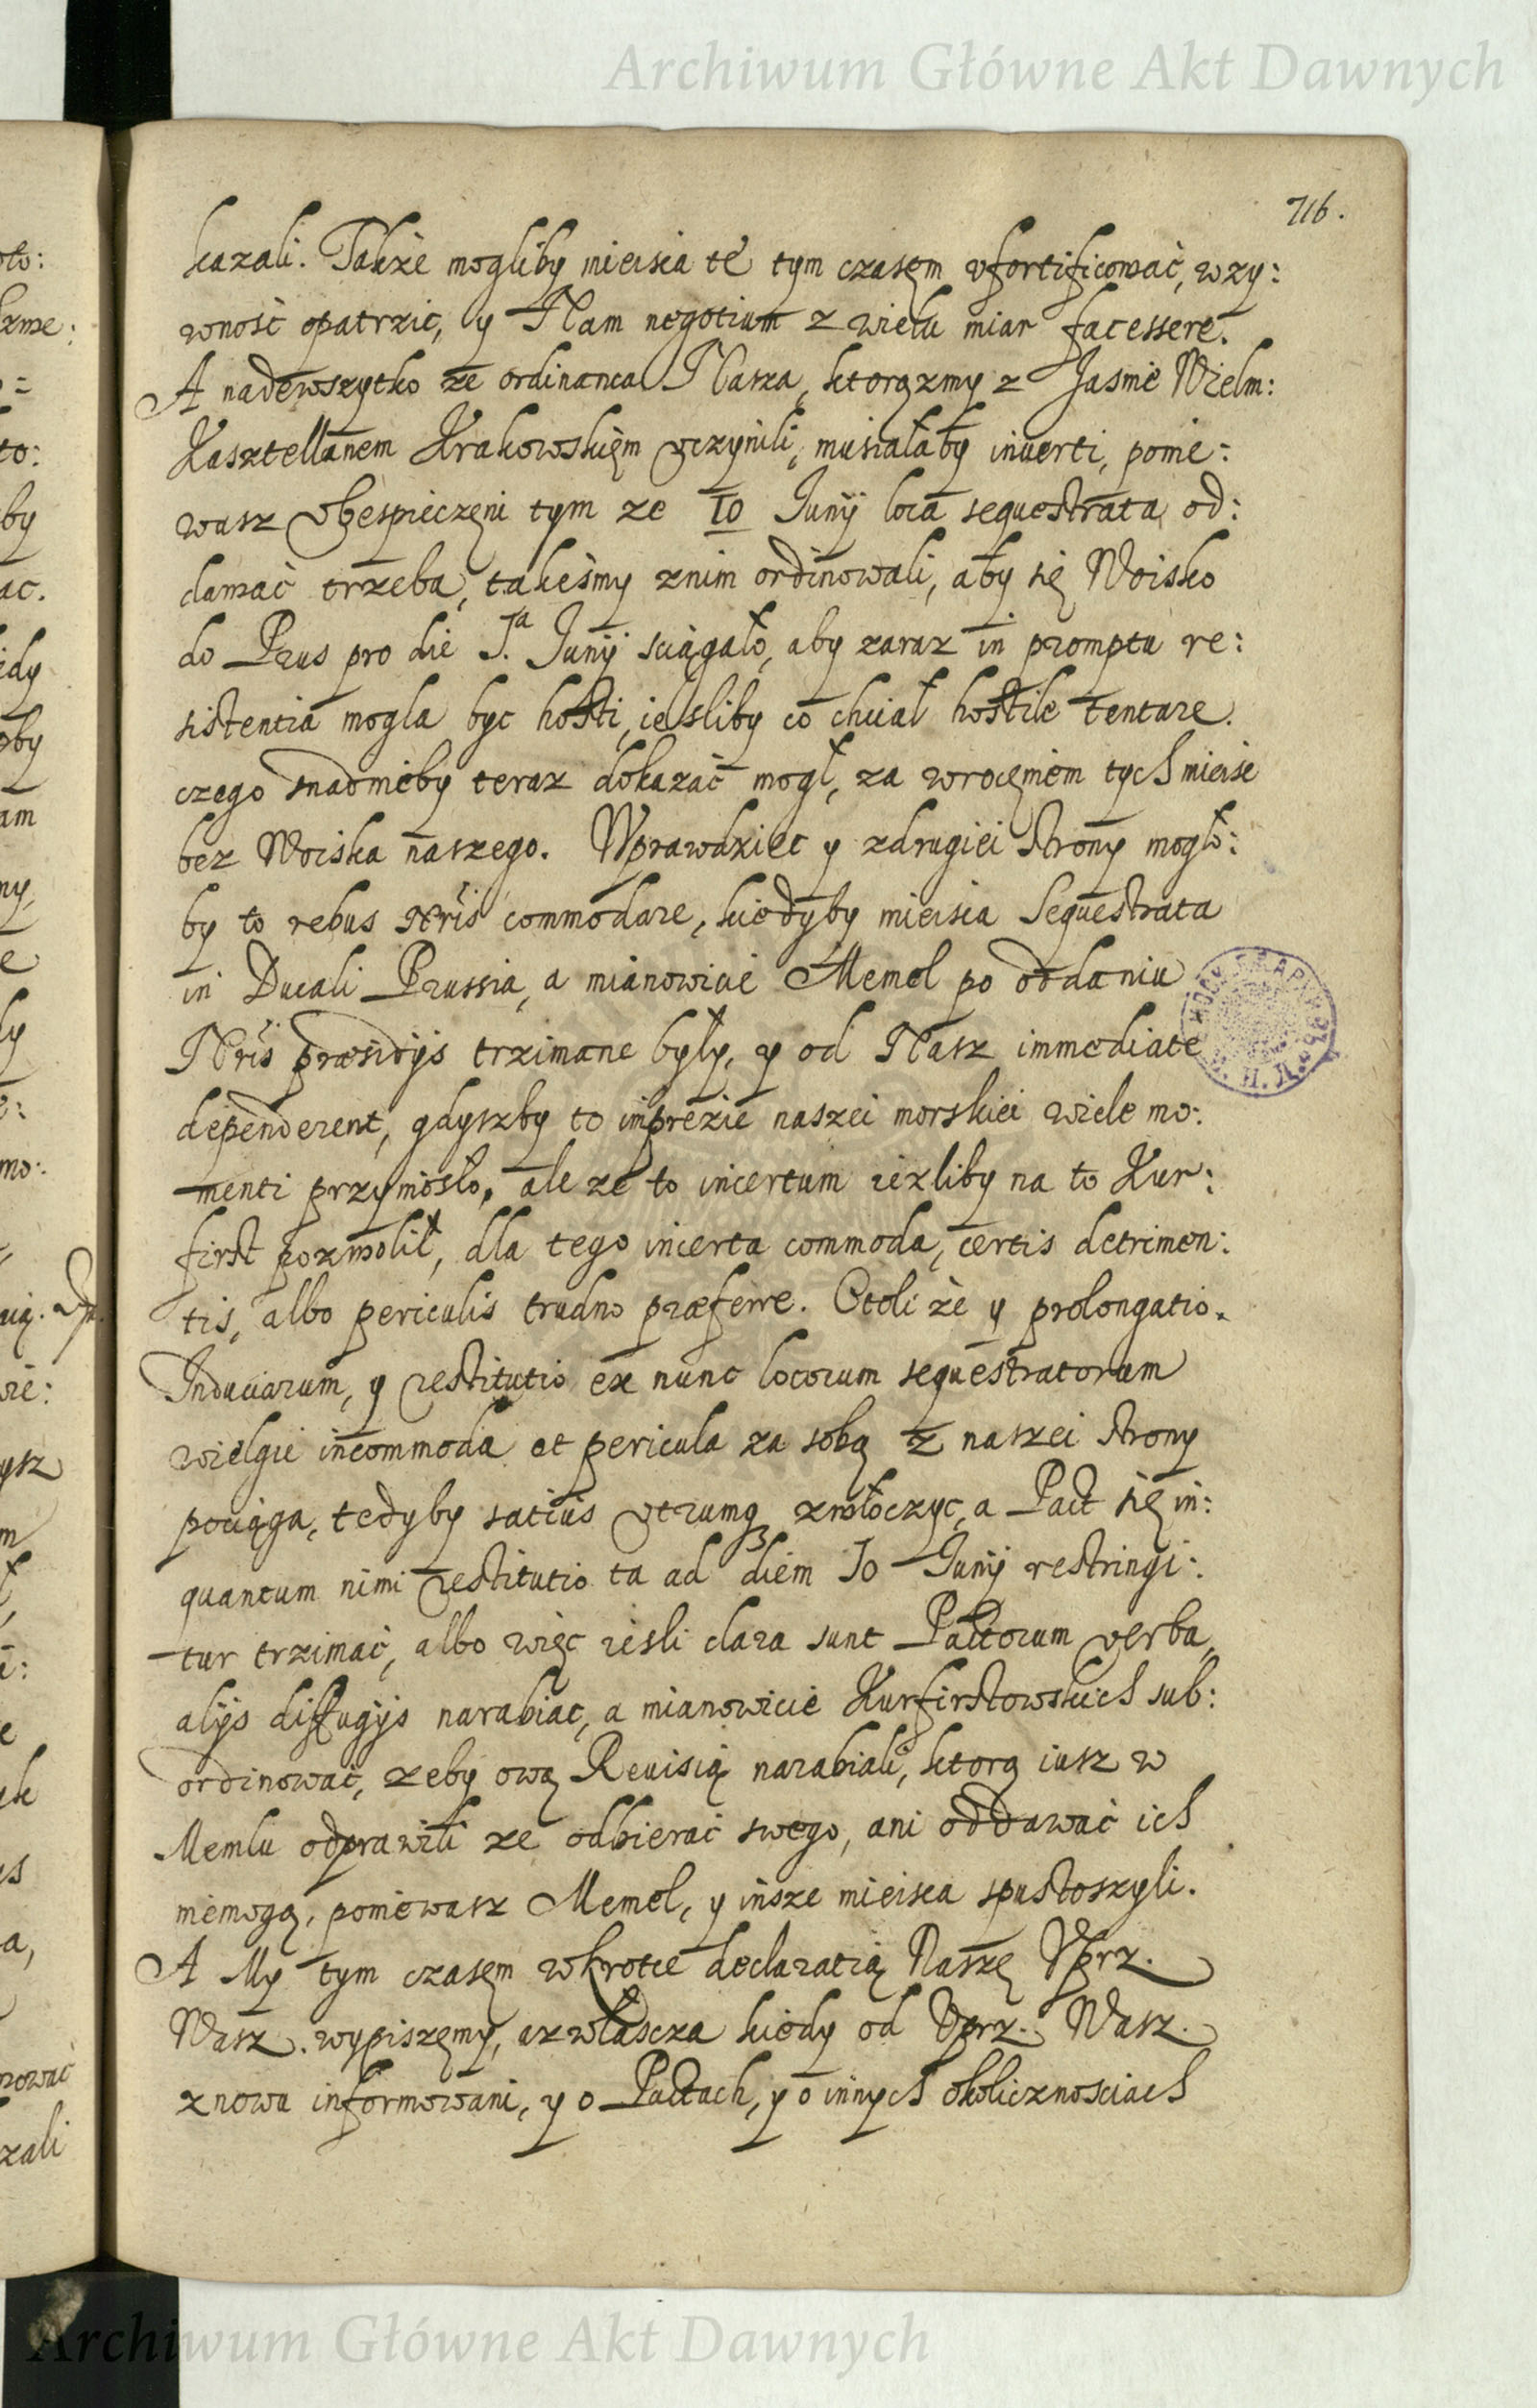 Archiwum Główne Akt Dawnych
716.
kazali. Takze mogliby mieisca te tym czasęm vfortificować, w zy:
wność opatrzic, y Nam negotium z wielu miar facessere.
A nadewszytko ze ordinanca Nasza, ktorąxmy z Jasnie Wielm:
Kasztellanem Krakowskięm vczynili, musiałaby inuerti, ponie:
wasz vbespieczęni tym ze 10 Junij loca sequestrata od:
dawać trzeba, takesmy znim ordinowali, aby się Woisko
do Prus pro die 1.ma Junij sciągało, aby zaraz in promptu re:
sistentia mogla byc hosti, iesliby co chciał hostile tentare.
czego snadnieby teraz dokazać mogł, za wrocęniem tych mieisc
bez Woiska naszego. Wprawdziec y zdrugiei strony mogło:
by to rebus Nris commodare, kiedyby mieisca Sequestrata
in Ducali Prussia, a mianowicie Memel po oddaniu
Nris præsidijs trzimane były, y od Nasz immediate
dependerent, gdyszby to imprezie naszei morskiei wiele mo:
menti przyniosło, ale ze to incertum iezliby na to Kur:
first pozwolił, dla tego incerta commoda, certis detrimen:
tis, albo periculis trudno præferre. Otoli że y prolongatio
Induciarum, y restitutio ex nunc locorum sequestratorum
wielgie incommoda et pericula za sobą z naszei strony
pociąga, tedyby satius vtrumq3 zwłoczyc, a Pact się in:
quantum nimi restitutio ta ad diem 10 Junij restringi:
tur trzimać, albo więc iesli clara sunt Pactorum verba,
alijs diffugijs narabiac, a mianowicie Kurfirstowskich sub:
ordinować, zeby ową Reuisią narabiali, ktorą iusz w
Memlu odprawili ze odbierać swego, ani oddawać ich
niemogą, poniewasz Memel, y insze mieisca spustoszyli.
A My tym czasęm wkrotce declaratią Naszę Vprz.
Wasz. wypiszęmy, azwłascza kiedy od Vprz. Wasz.
znowu informowani, y o Pactach, y o innych okolicznosciach
Archiwum Główne Akt Dawnych